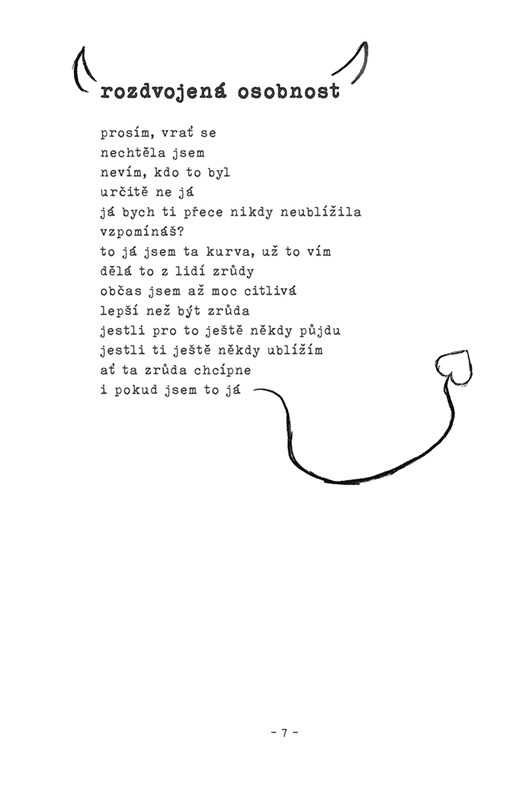 rozdvojená osobnost
prosím, vrať se
nechtěla jsem
nevím, kdo to byl
určitě ne já
já bych ti přece nikdy neublížila
vzpomínáš?
to já jsem ta kurva, už to vím
dělá to z lidí zrůdy
občas jsem až moc citlivá
lepší než být zrůda
jestli pro to ještě někdy půjdu
jestli ti ještě někdy ublížím
ať ta zrůda chcípne
i pokud jsem to já
- 7 -